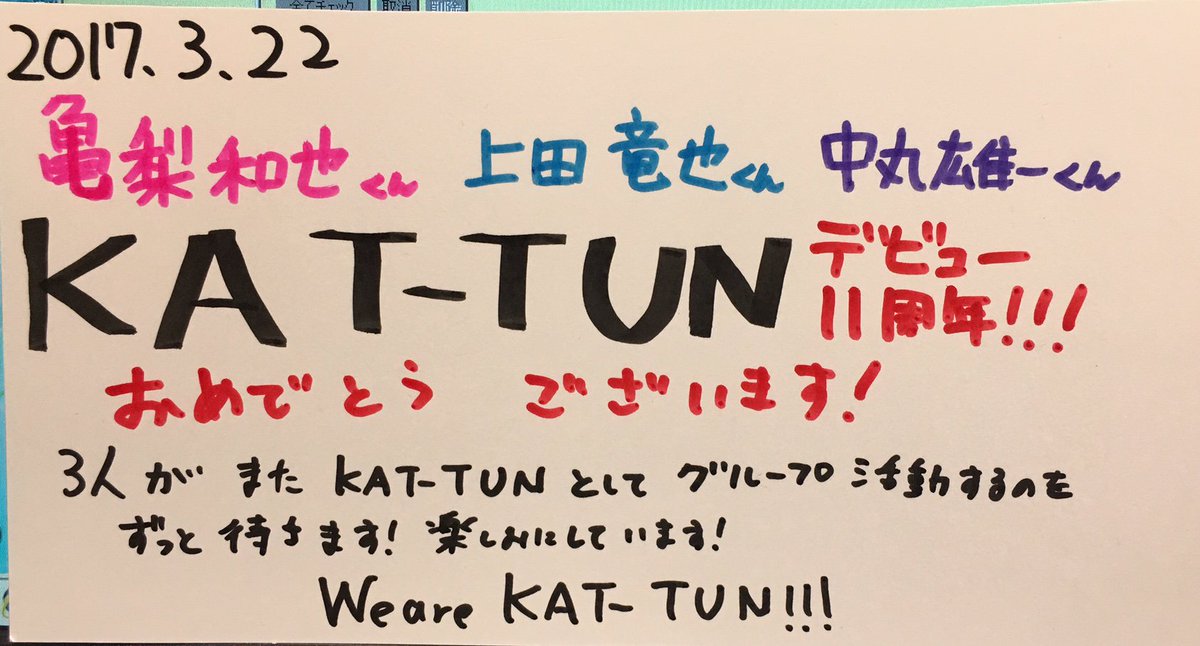 全てチェック 取消 削除
2017.3.22
亀梨和也くん 上田竜也くん 中丸雄一くん
KAT-TUN デビュー
11周年!!!
おめでとう ございます!
3人が また KAT-TUN として グループ活動するのを
ずっと 待ちます! 楽しみにしています!
We are KAT-TUN!!!